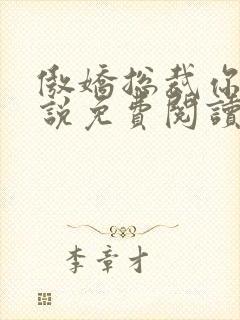 傲嬌總裁你
說免費閱讀
李章才